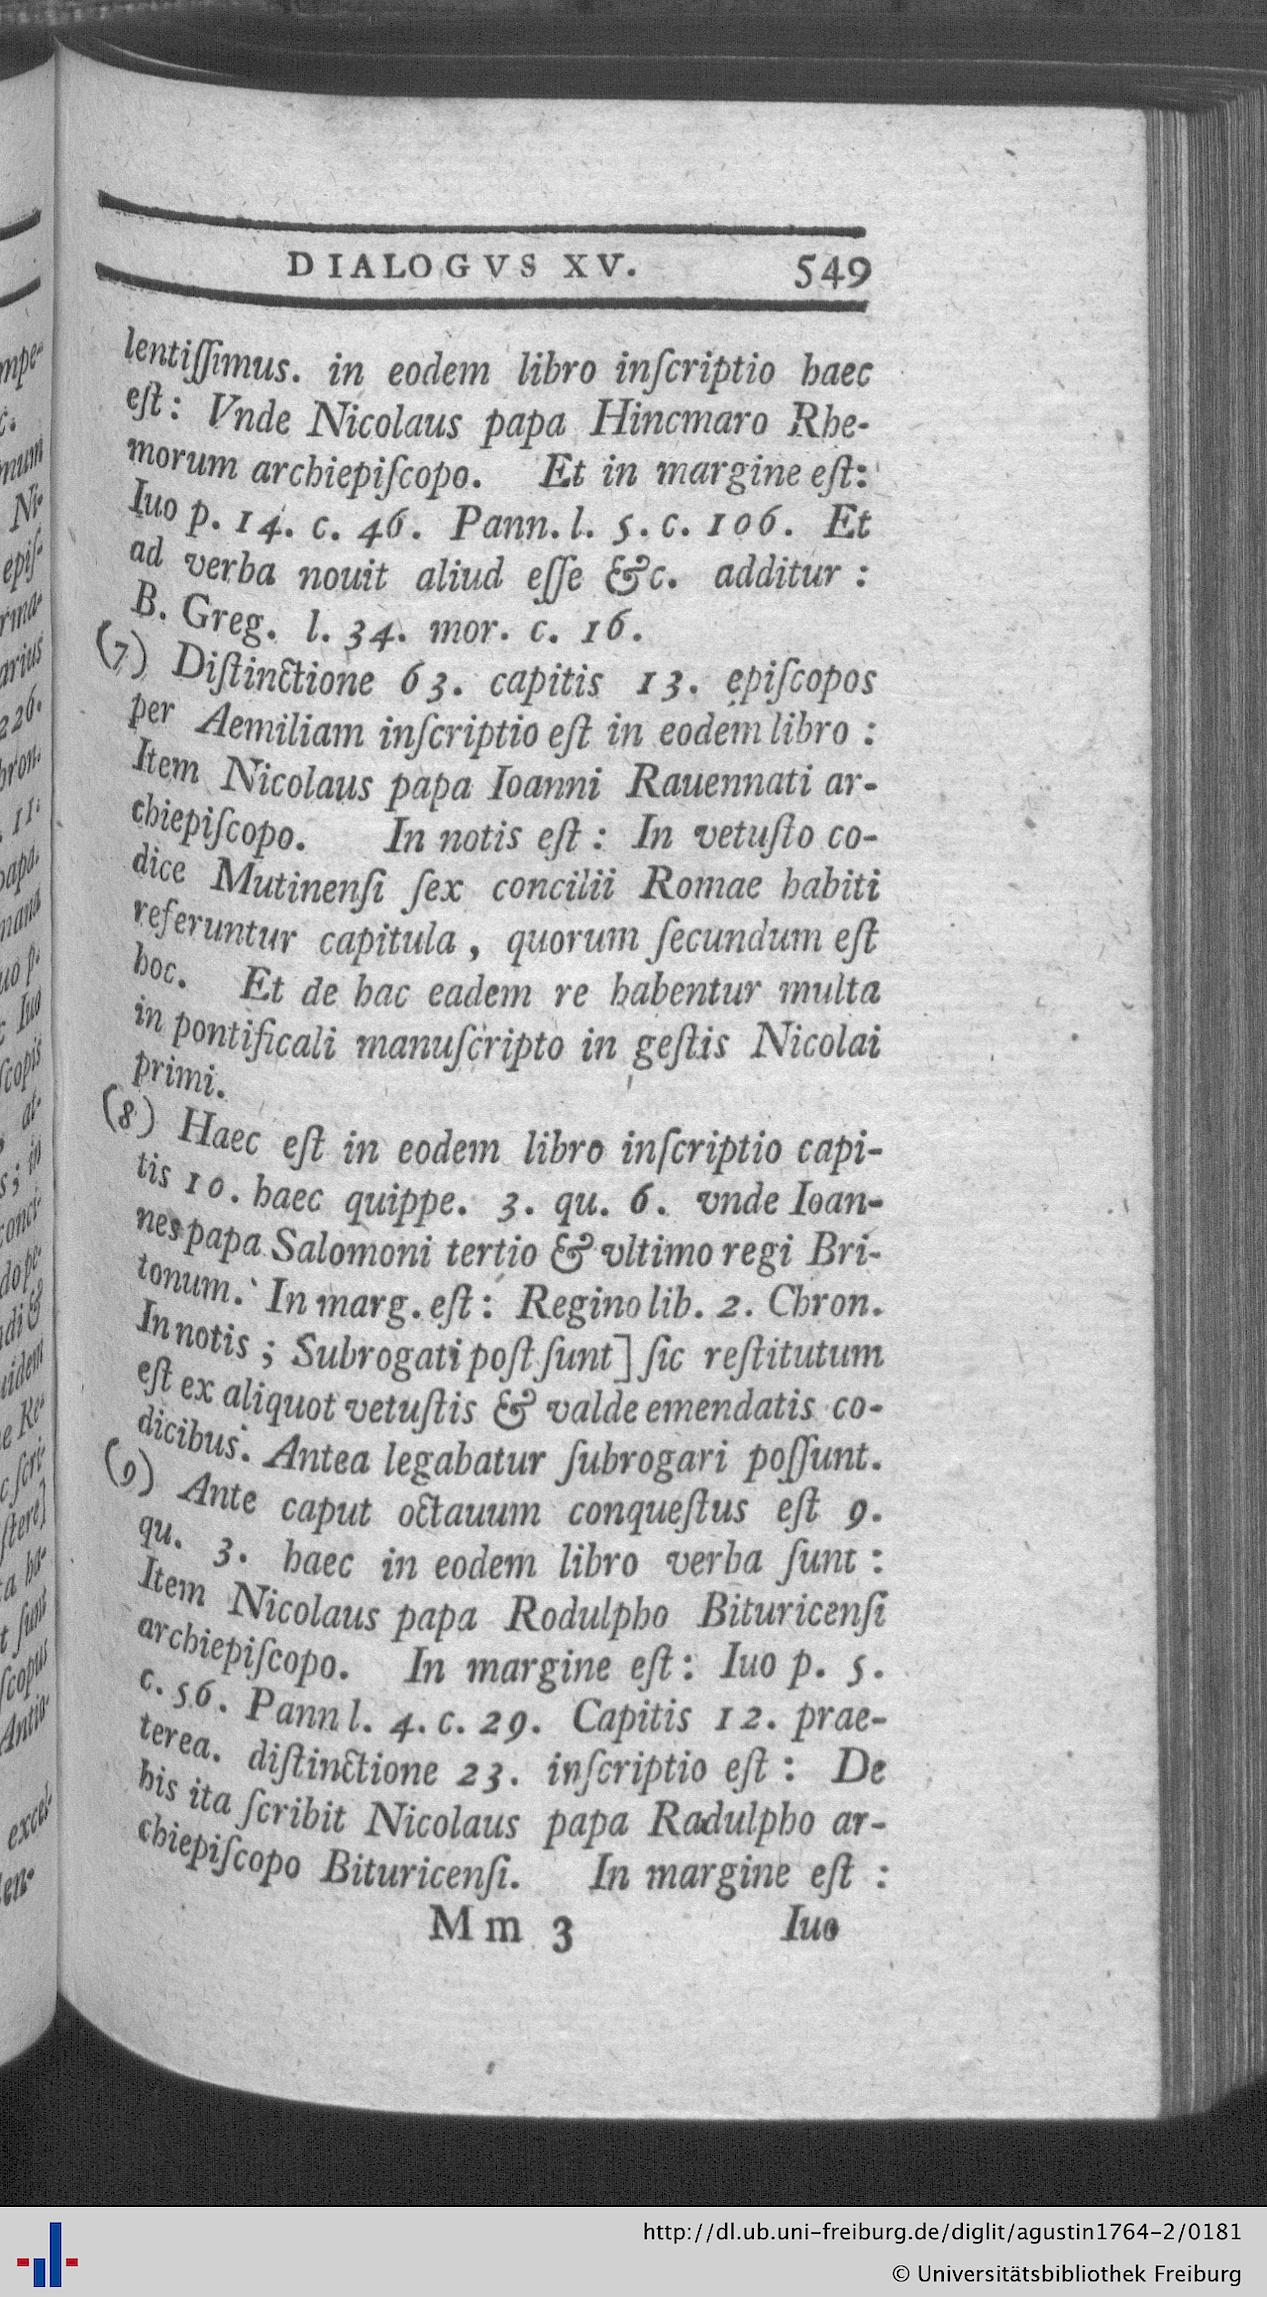 DIALOGVS XV. 549
lentiſſimus. in eodem libro inſcriptio haec
eſt: Vnde Nicolaus papa Hincmaro Rhe-
morum archiepiſcopo. Et in margine eſt:
Iuo p. 14. c. 46. Pann. l. 5. c. 106. Et
ad verba nouit aliud eſſe &c. additur :
B. Greg. l. 34. mor. c. 16.
(7) Diſtinctione 63. capitis 13. epiſcopos
per Aemiliam inſcriptio eſt in eodem libro :
Item Nicolaus papa Ioanni Rauennati ar-
chiepiſcopo. In notis eſt : In vetuſto co-
dice Mutinenſi ſex concilii Romae habiti
referuntur capitula , quorum ſecundum eſt
hoc. Et de hac eadem re habentur multa
in pontificali manuſcripto in geſtis Nicolai
primi.
(8) Haec eſt in eodem libro inſcriptio capi-
tis 10. haec quippe. 3. qu. 6. vnde Ioan-
nes papa Salomoni tertio & vltimo regi Bri-
tonum. In marg. eſt : Regino lib. 2. Chron.
In notis ; Subrogati poſt ſunt] ſic reſtitutum
eſt ex aliquot vetuſtis & valde emendatis co-
dicibus. Antea legabatur ſubrogari poſſunt.
(9) Ante caput octauum conqueſtus eſt 9.
qu. 3. haec in eodem libro verba ſunt :
Item Nicolaus papa Rodulpho Bituricenſi
archiepiſcopo. In margine eſt : Iuo p. 5.
c. 56. Pann l. 4. c. 29. Capitis 12. prae-
terea. diſtinctione 23. inſcriptio eſt : De
his ita ſcribit Nicolaus papa Radulpho ar-
chiepiſcopo Bituricenſi. In margine eſt :
Mm 3 Iuo
http://dl.ub.uni-freiburg.de/diglit/agustin1764-2/0181
© Universitätsbibliothek Freiburg